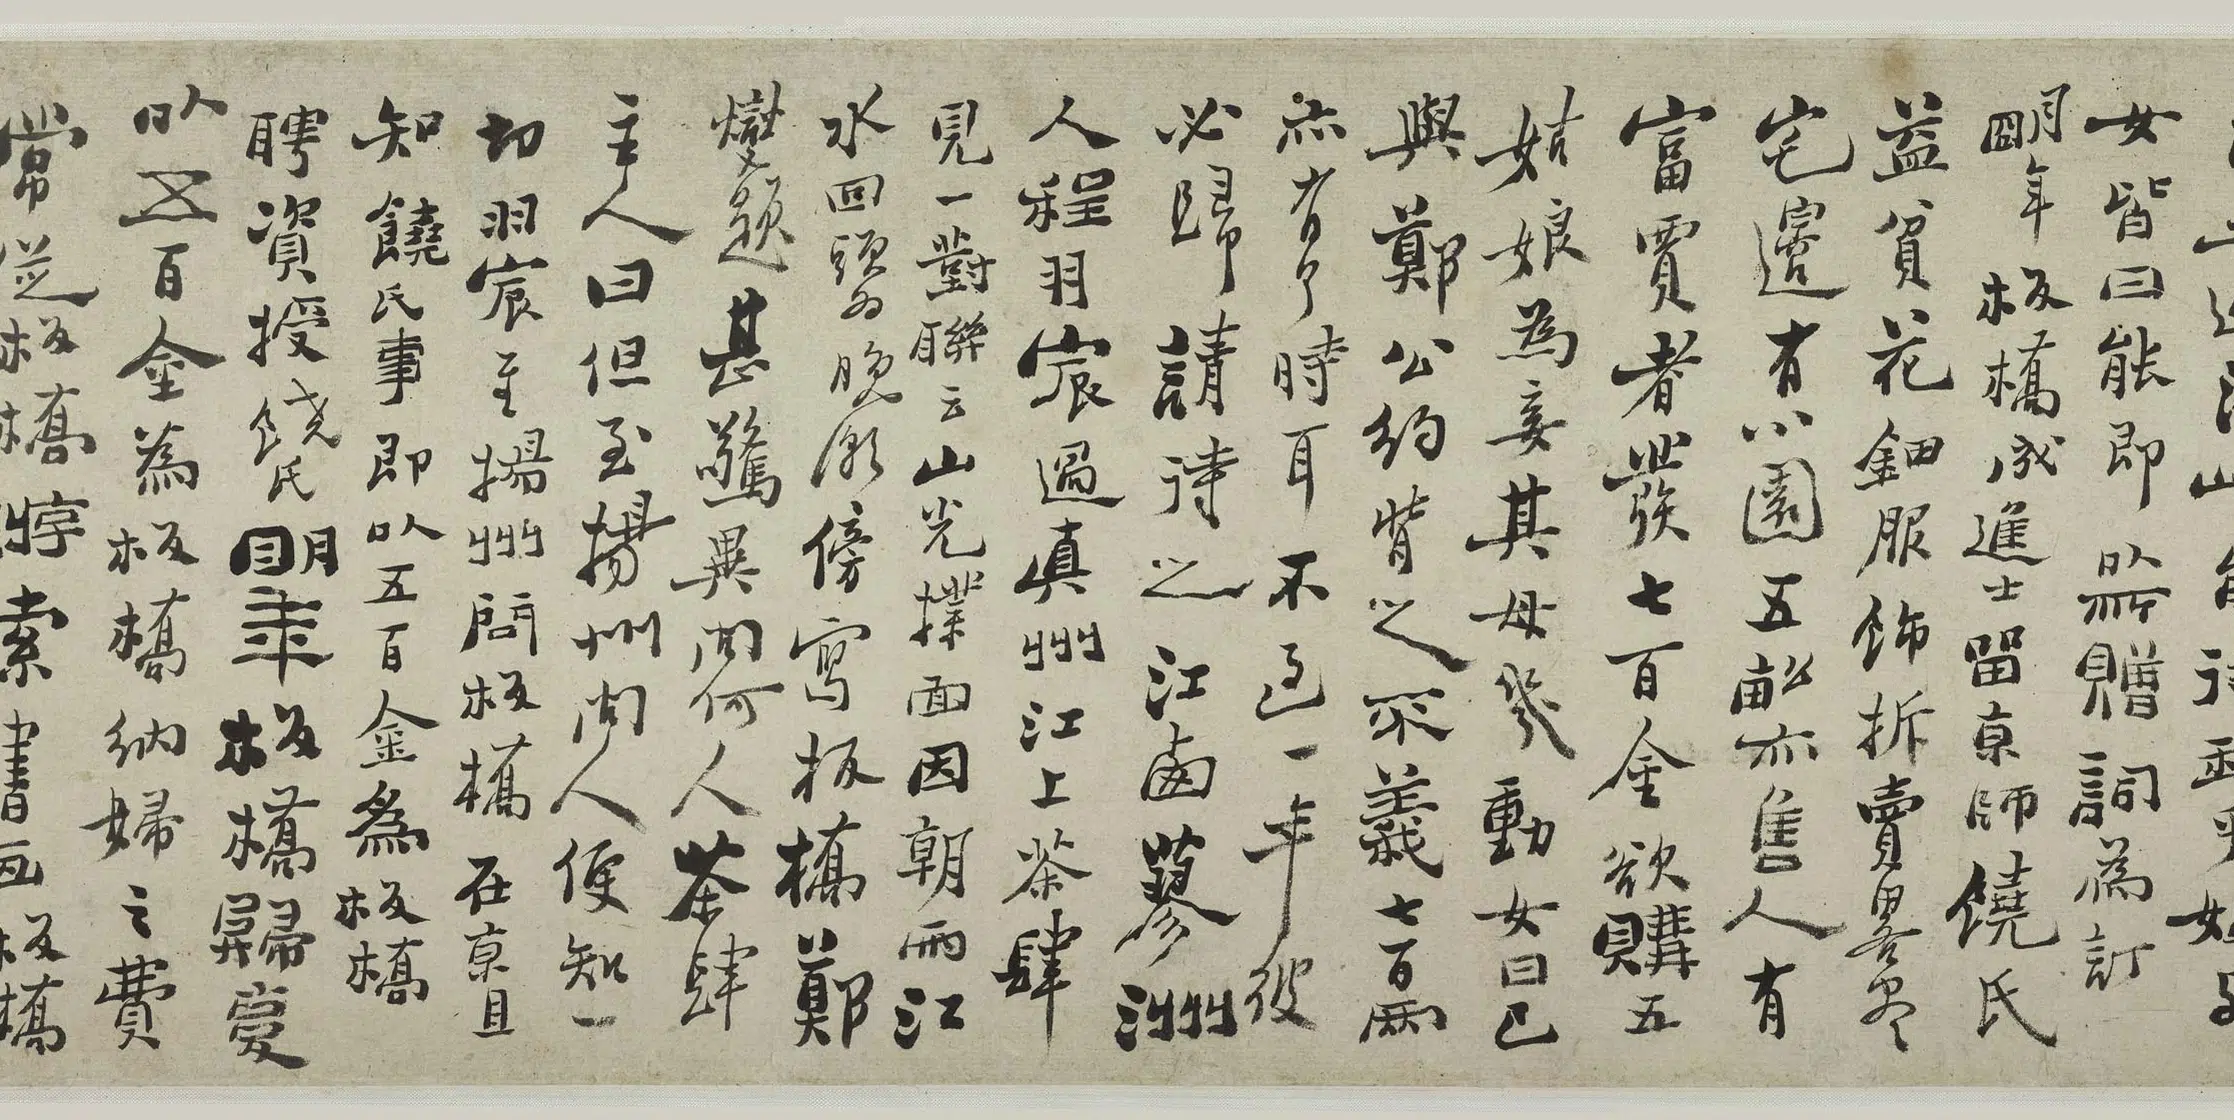 女皆曰能即以所贈詞為訂
明年板橋成進士留京師饒氏
益貧花鈿服飾拆賣畧尽
宅邊有小園五畝亦售人有
富賈者發七百金欲購五
姑娘為妾其母幾動女曰已
與鄭公約背之不義七百兩
亦有了時耳不過一年彼
必歸請待之江西蓼洲
人程羽宸過真州江上茶肆
見一對聯云山光撲面因朝雨江
水回頭為晚潮傍寫板橋鄭
燮題甚驚異問何人茶肆
主人曰但至揚州問人便知一
切羽宸至揚州問板橋在京且
知饒氏事即以五百金為板橋
聘資授饒氏明年板橋歸復
以五百金為板橋納婦之費
常從板橋游索書画板橋